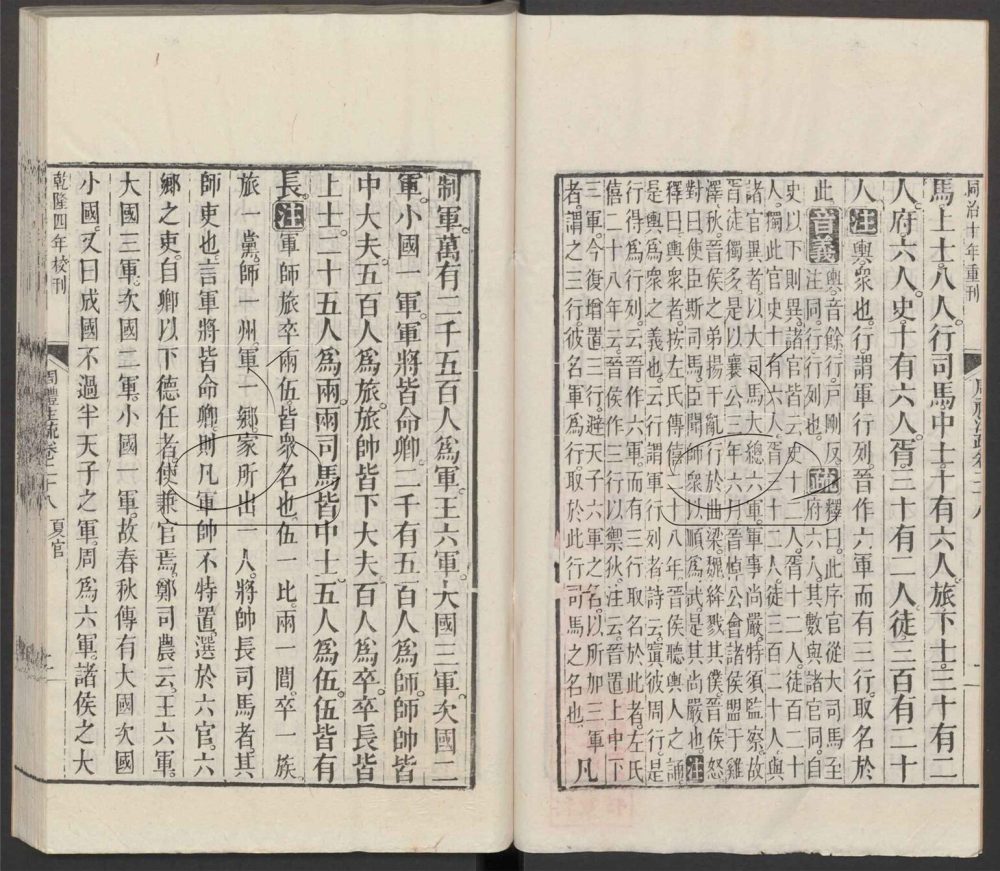 同治十年重刊
馬上士八人行司馬中士十有六人旅下士三十有二
人府六人史十有六人胥三十有二人徒三百有二十
人注輿衆也行謂軍行列晉作六軍而有三行取名於
此音義輿音餘行戸剛反注同行行列也疏釋曰此序官從大司馬至
史以下則異諸官皆云史十二人胥十二人徒百二十
人獨此官史十有六人胥三十二人徒三百二十人與
諸官異者以大司馬大總六軍軍事尚嚴特須監察故
胥徒獨多是以襄公三年六月晉悼公會諸侯盟于雞
澤秋晉侯之弟揚干亂行於曲梁魏絳戮其僕晉侯怒
對曰使臣斯司馬臣聞師衆以順爲武是其尚嚴也注
釋曰輿衆者按左氏傳僖二十八年晉侯聽輿人之誦
是輿爲衆之義也云行謂軍行列者詩云寘彼周行是
行得爲行列云晉作六軍而有三行取名於此者左氏
僖二十八年云晉侯作三行以禦狄注云晉置上中下
三軍今復增置三行避天子六軍之名以所加三軍
者謂之三行彼名軍爲行取於此行司馬之名也 凡
制軍萬有二千五百人爲軍王六軍大國三軍次國二
軍小國一軍軍將皆命卿二千有五百人爲師師帥皆
中大夫五百人爲旅旅帥皆下大夫百人爲卒卒長皆
上士二十五人爲兩兩司馬皆中士五人爲伍伍皆有
長注軍師旅卒兩伍皆衆名也伍一比兩一閭卒一族
旅一黨師一州軍一鄉家所出一人將帥長司馬者其
師吏也言軍將皆命卿則凡軍帥不特置選於六官六
鄉之吏自卿以下德任者使兼官焉鄭司農云王六軍
大國三軍次國二軍小國一軍故春秋傳有大國次國
小國又曰成國不過半天子之軍周爲六軍諸侯之大
乾隆四年校刊
周禮注疏卷二十八 夏官